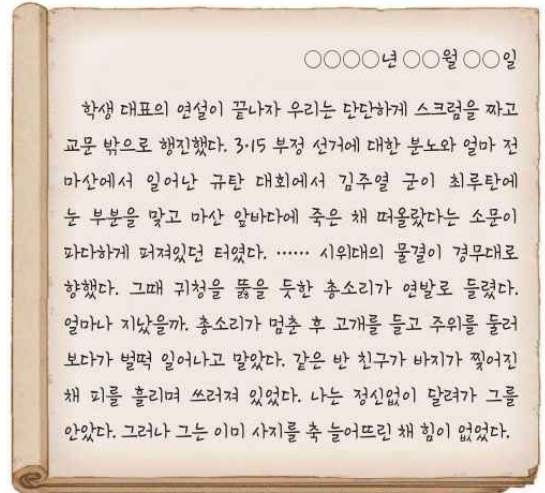 ○○○○년 ○○월 ○○일
학생 대표의 연설이 끝나자 우리는 단단하게 스크럼을 짜고
교문 밖으로 행진했다. 3·15 부정 선거에 대한 분노와 얼마 전
마산에서 일어난 규탄 대회에서 김주열 군이 최루탄에
눈 부분을 맞고 마산 앞바다에 죽은 채 떠올랐다는 소문이
파다하게 퍼져있던 터였다. …… 시위대의 물결이 경무대로
향했다. 그때 귀청을 뚫을 듯한 총소리가 연발로 들렸다.
얼마나 지났을까. 총소리가 멈춘 후 고개를 들고 주위를 둘러
보다가 벌떡 일어나고 말았다. 같은 반 친구가 바지가 찢어진
채 피를 흘리며 쓰러져 있었다. 나는 정신없이 달려가 그를
안았다. 그러나 그는 이미 사지를 축 늘어뜨린 채 힘이 없었다.